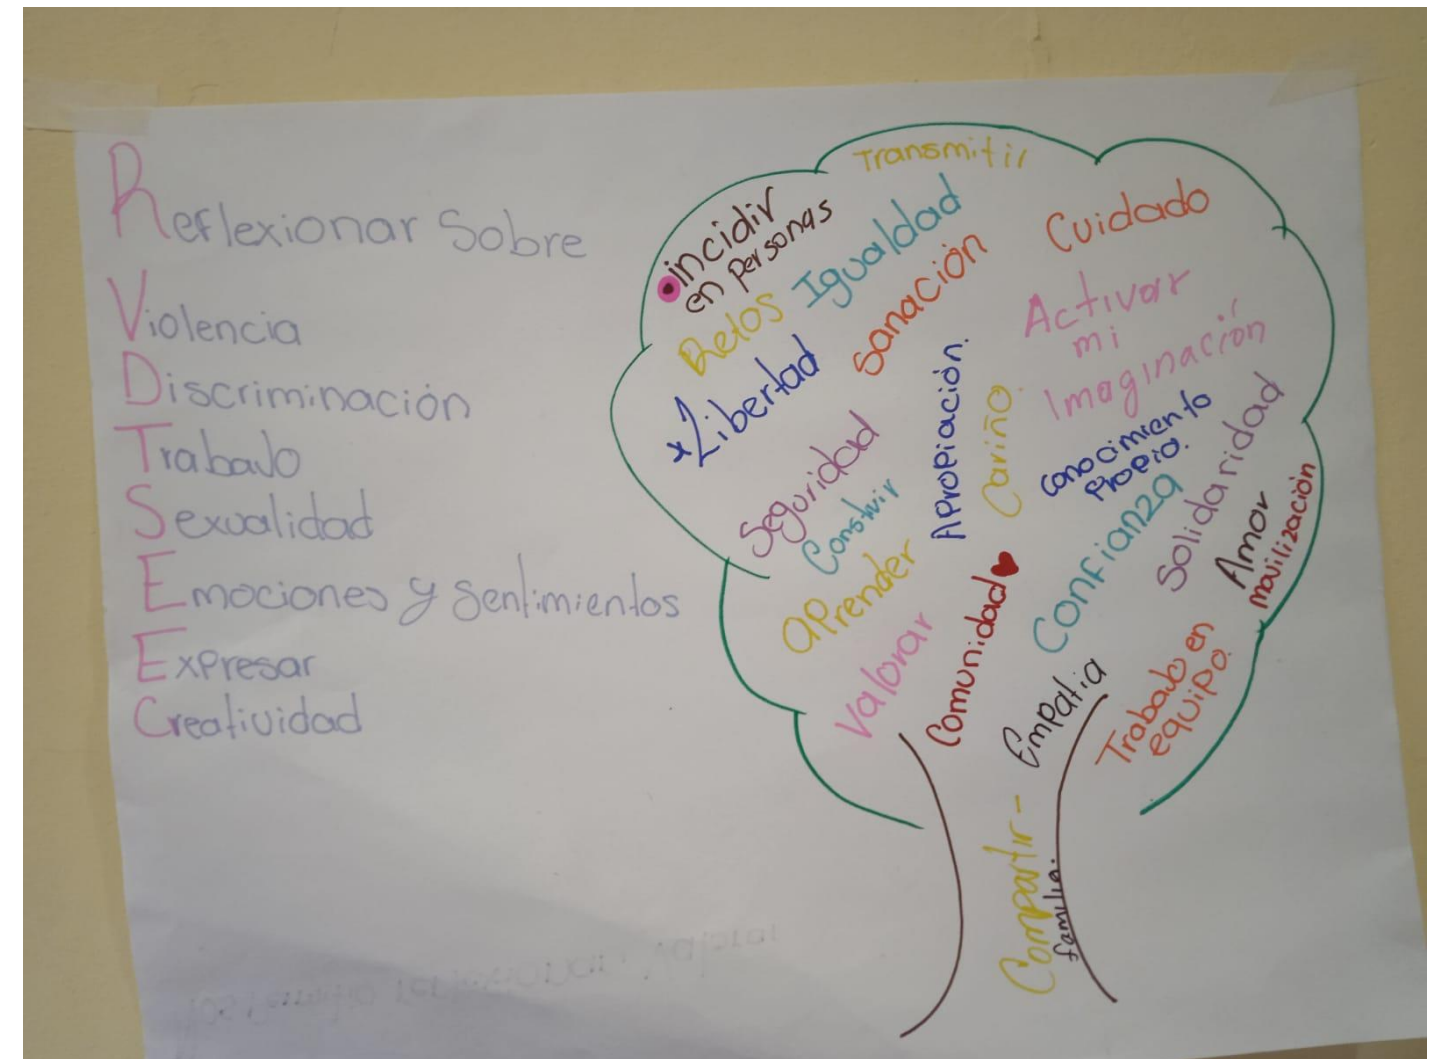 Reflexionar Sobre
Violencia
Discriminación
Trabajo
Sexualidad
Emociones y Sentimientos
Expresar
Creatividad
Transmitir
incidir
en personas
Igualdad
Cuidado
Retos
Sanación
Activar
mi
Imaginación
*Libertad
Apropiación.
Cariño
conocimiento
Propio.
Solidaridad
Seguridad
Construir
Confianza
Amor
movilización
aprender
Comunidad
Valorar
Empatia
Trabajo en
equipo.
Compartir-
familia.